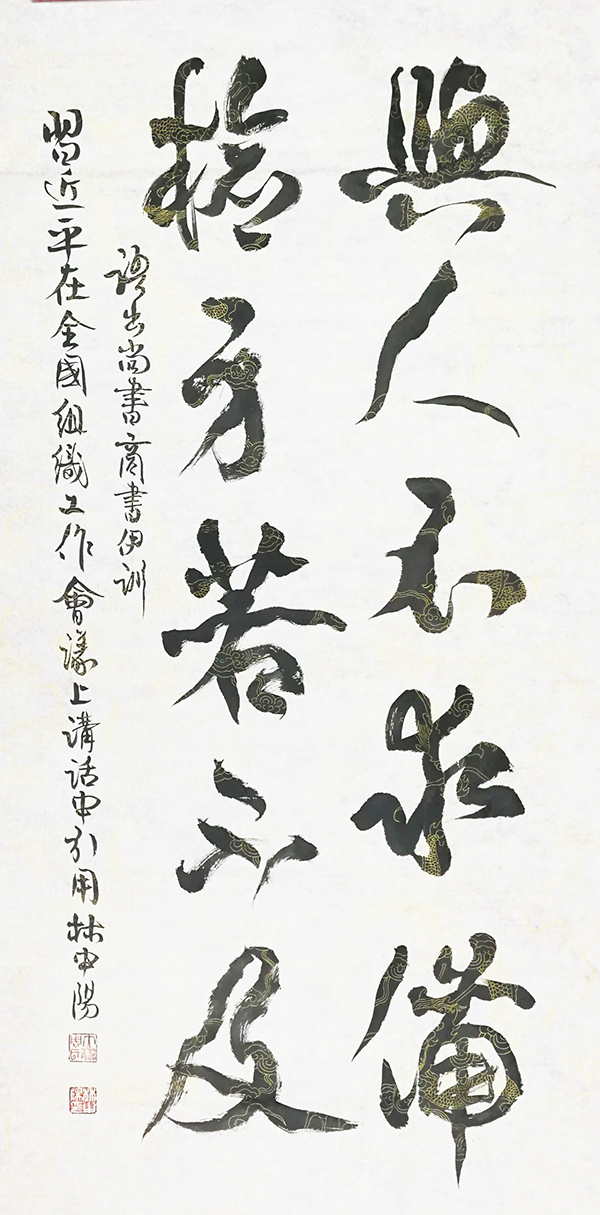 與人不求備
檢身若不及
語出尚書商書伊訓
習近平在全國組織工作會議上講話中引用林中陽